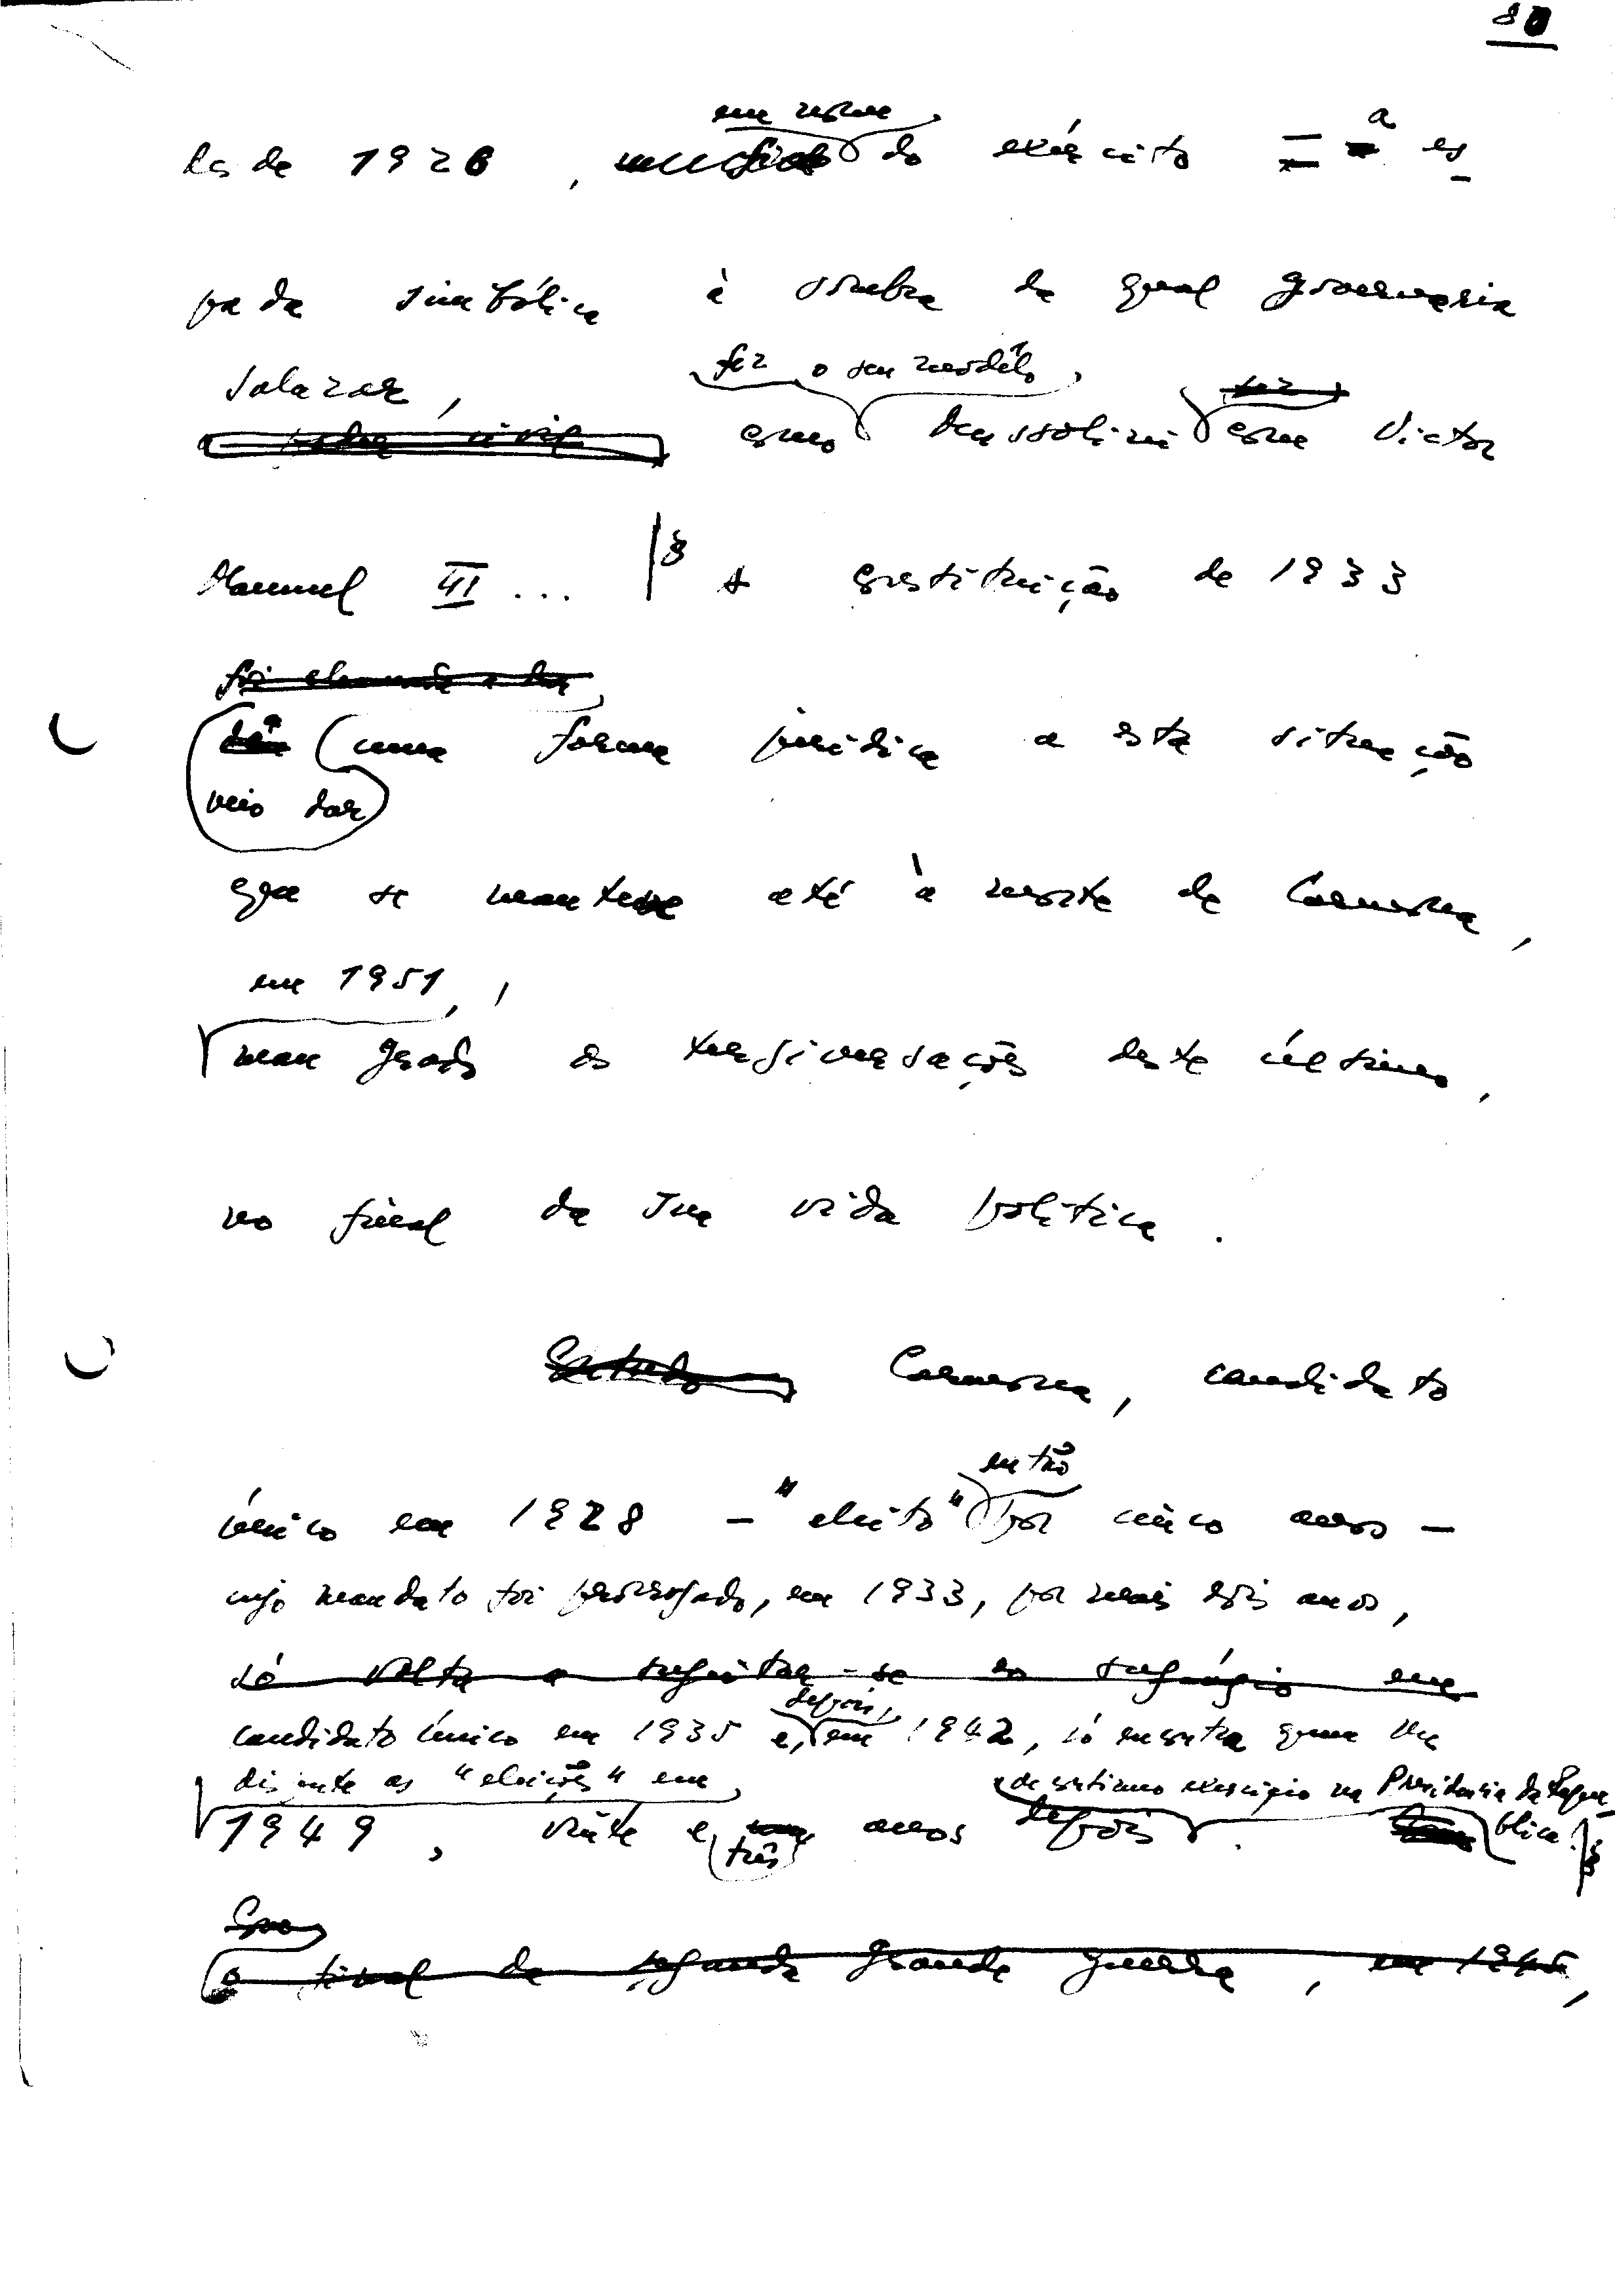 80
em nome
desde 1926, do exército — a es-
pada simbólica à sombra da qual governaria
fez o seu modêlo,
Salazar,
como Mussolini com Victor
Manuel III ... A Constituição de 1933
uma forma jurídica a esta situação
veio dar
que se manteve até à morte de Carmona,
em 1951,
mau grado as tergiversações deste último,
no final da sua vida política.
Carmona, candidato
então
único em 1928 - "eleito" por cinco anos -
cujo mandato foi prorrogado, em 1933, por mais dois anos,
só volta a sujeitar-se ao sufrágio em
depois,
candidato único em 1935 e, em 1942, só encontra quem lhe
dispute as "eleições" em
de contínuo exercício na Presidência da Repú-
1949, vinte e anos depois. blica.
três
Com
o final da segunda grande guerra, em 1945,